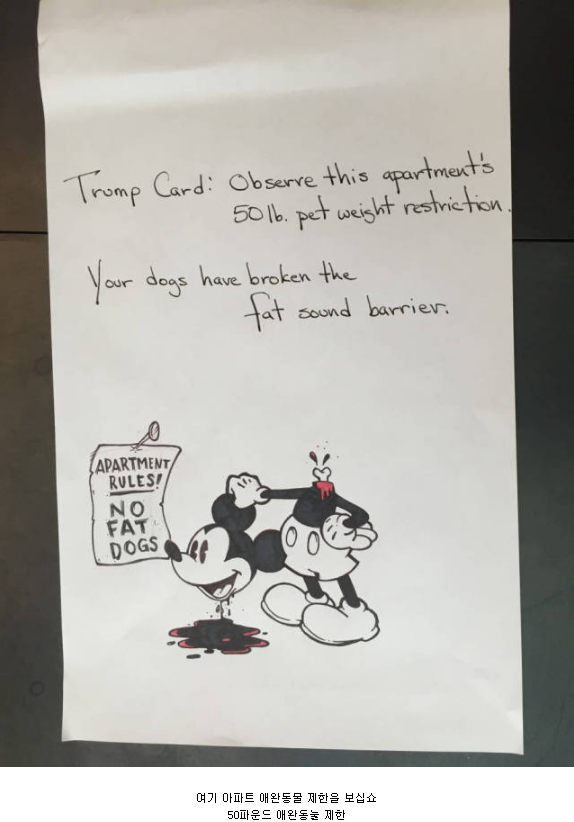 Trump Card: Observe this apartment's
50 lb. pet weight restriction.
Your dogs have broken the
fat sound barrier.
APARTMENT
RULES!
NO
FAT
DOGS
여기 아파트 애완동물 제한을 보십쇼
50파운드 애완동눌 제한